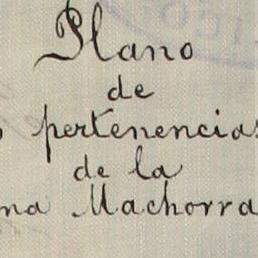 Plano
de
pertenencias
de la
na Machorra